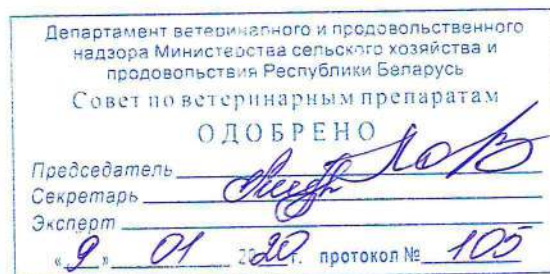 Департамент ветеринарного и продовольственного
надзора Министерства сельского хозяйства и
продовольствия Республики Беларусь
Совет по ветеринарным препаратам
ОДОБРЕНО
Председатель
Секретарь
Эксперт
«9» 01 2020г. протокол № 105